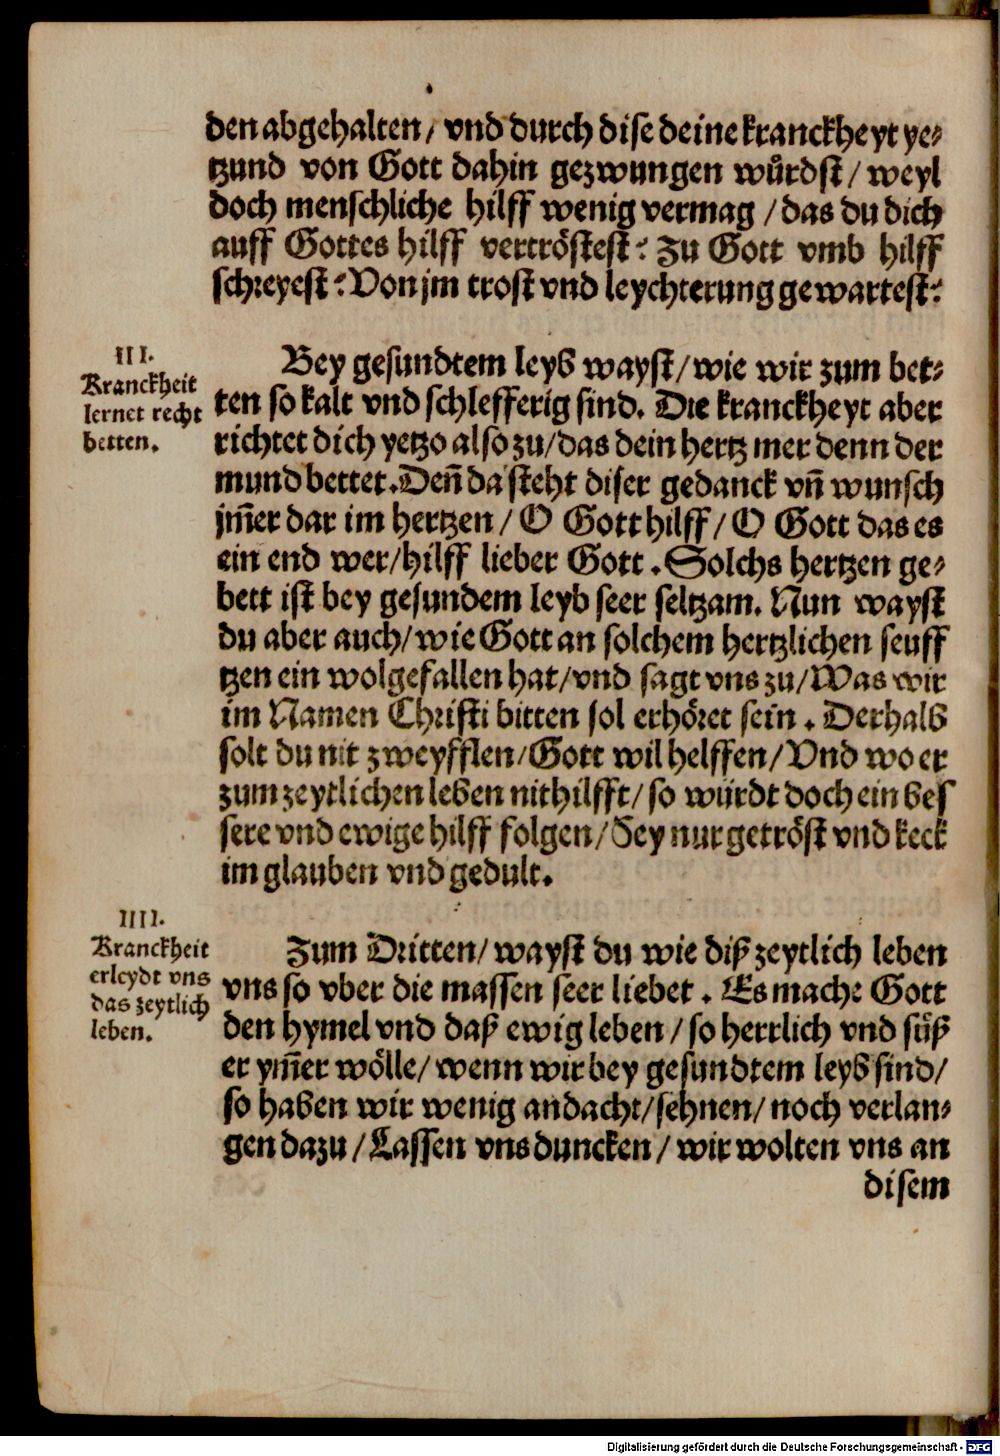 den abgehalten / vnd durch dise deine kranckheyt ye-
tzund von Gott dahin gezwungen wuͤrdst / weyl
doch menschliche hilff wenig vermag / das du dich
auff Gottes hilff vertröstest? Zu Gott vmb hilff
schreyest? Von jm trost vnd leychterung gewartest?
III.
Kranckheit
lernet recht
betten.
Bey gesundtem leyb wayst / wie wir zum bet-
ten so kalt vnd schlefferig sind. Die kranckheyt aber
richtet dich yetzo also zu / das dein hertz mer denn der
mund bettet. Deñ da steht diser gedanck vñ wunsch
jm̄er dar im hertzen / O Gott hilff / O Gott das es
ein end wer / hilff lieber Gott. Solchs hertzen ge-
bett ist bey gesundem leyb seer seltzam. Nun wayst
du aber auch / wie Gott an solchem hertzlichen seuff
tzen ein wolgefallen hat / vnd sagt vns zu / Was wir
im Namen Christi bitten sol erhöret sein. Derhalb
solt du nit zweyfflen / Gott wil helffen / Vnd wo er
zum zeytlichen leben nit hilfft / so würdt doch ein bes
sere vnd ewige hilff folgen / Sey nur getröst vnd keck
im glauben vnd gedult.
IIII.
Kranckheit
erleydt vns
das zeytlich
leben.
Zum Dritten / wayst du wie diß zeytlich leben
vns so vber die massen seer liebet. Es mache Gott
den hymel vnd daß ewig leben / so herrlich vnd süß
er ym̄er wölle / wenn wir bey gesundtem leyb sind /
so haben wir wenig andacht / sehnen / noch verlan-
gen dazu / Lassen vns duncken / wir wolten vns an
disem
Digitalisierung gefördert durch die Deutsche Forschungsgemeinschaft - DFG